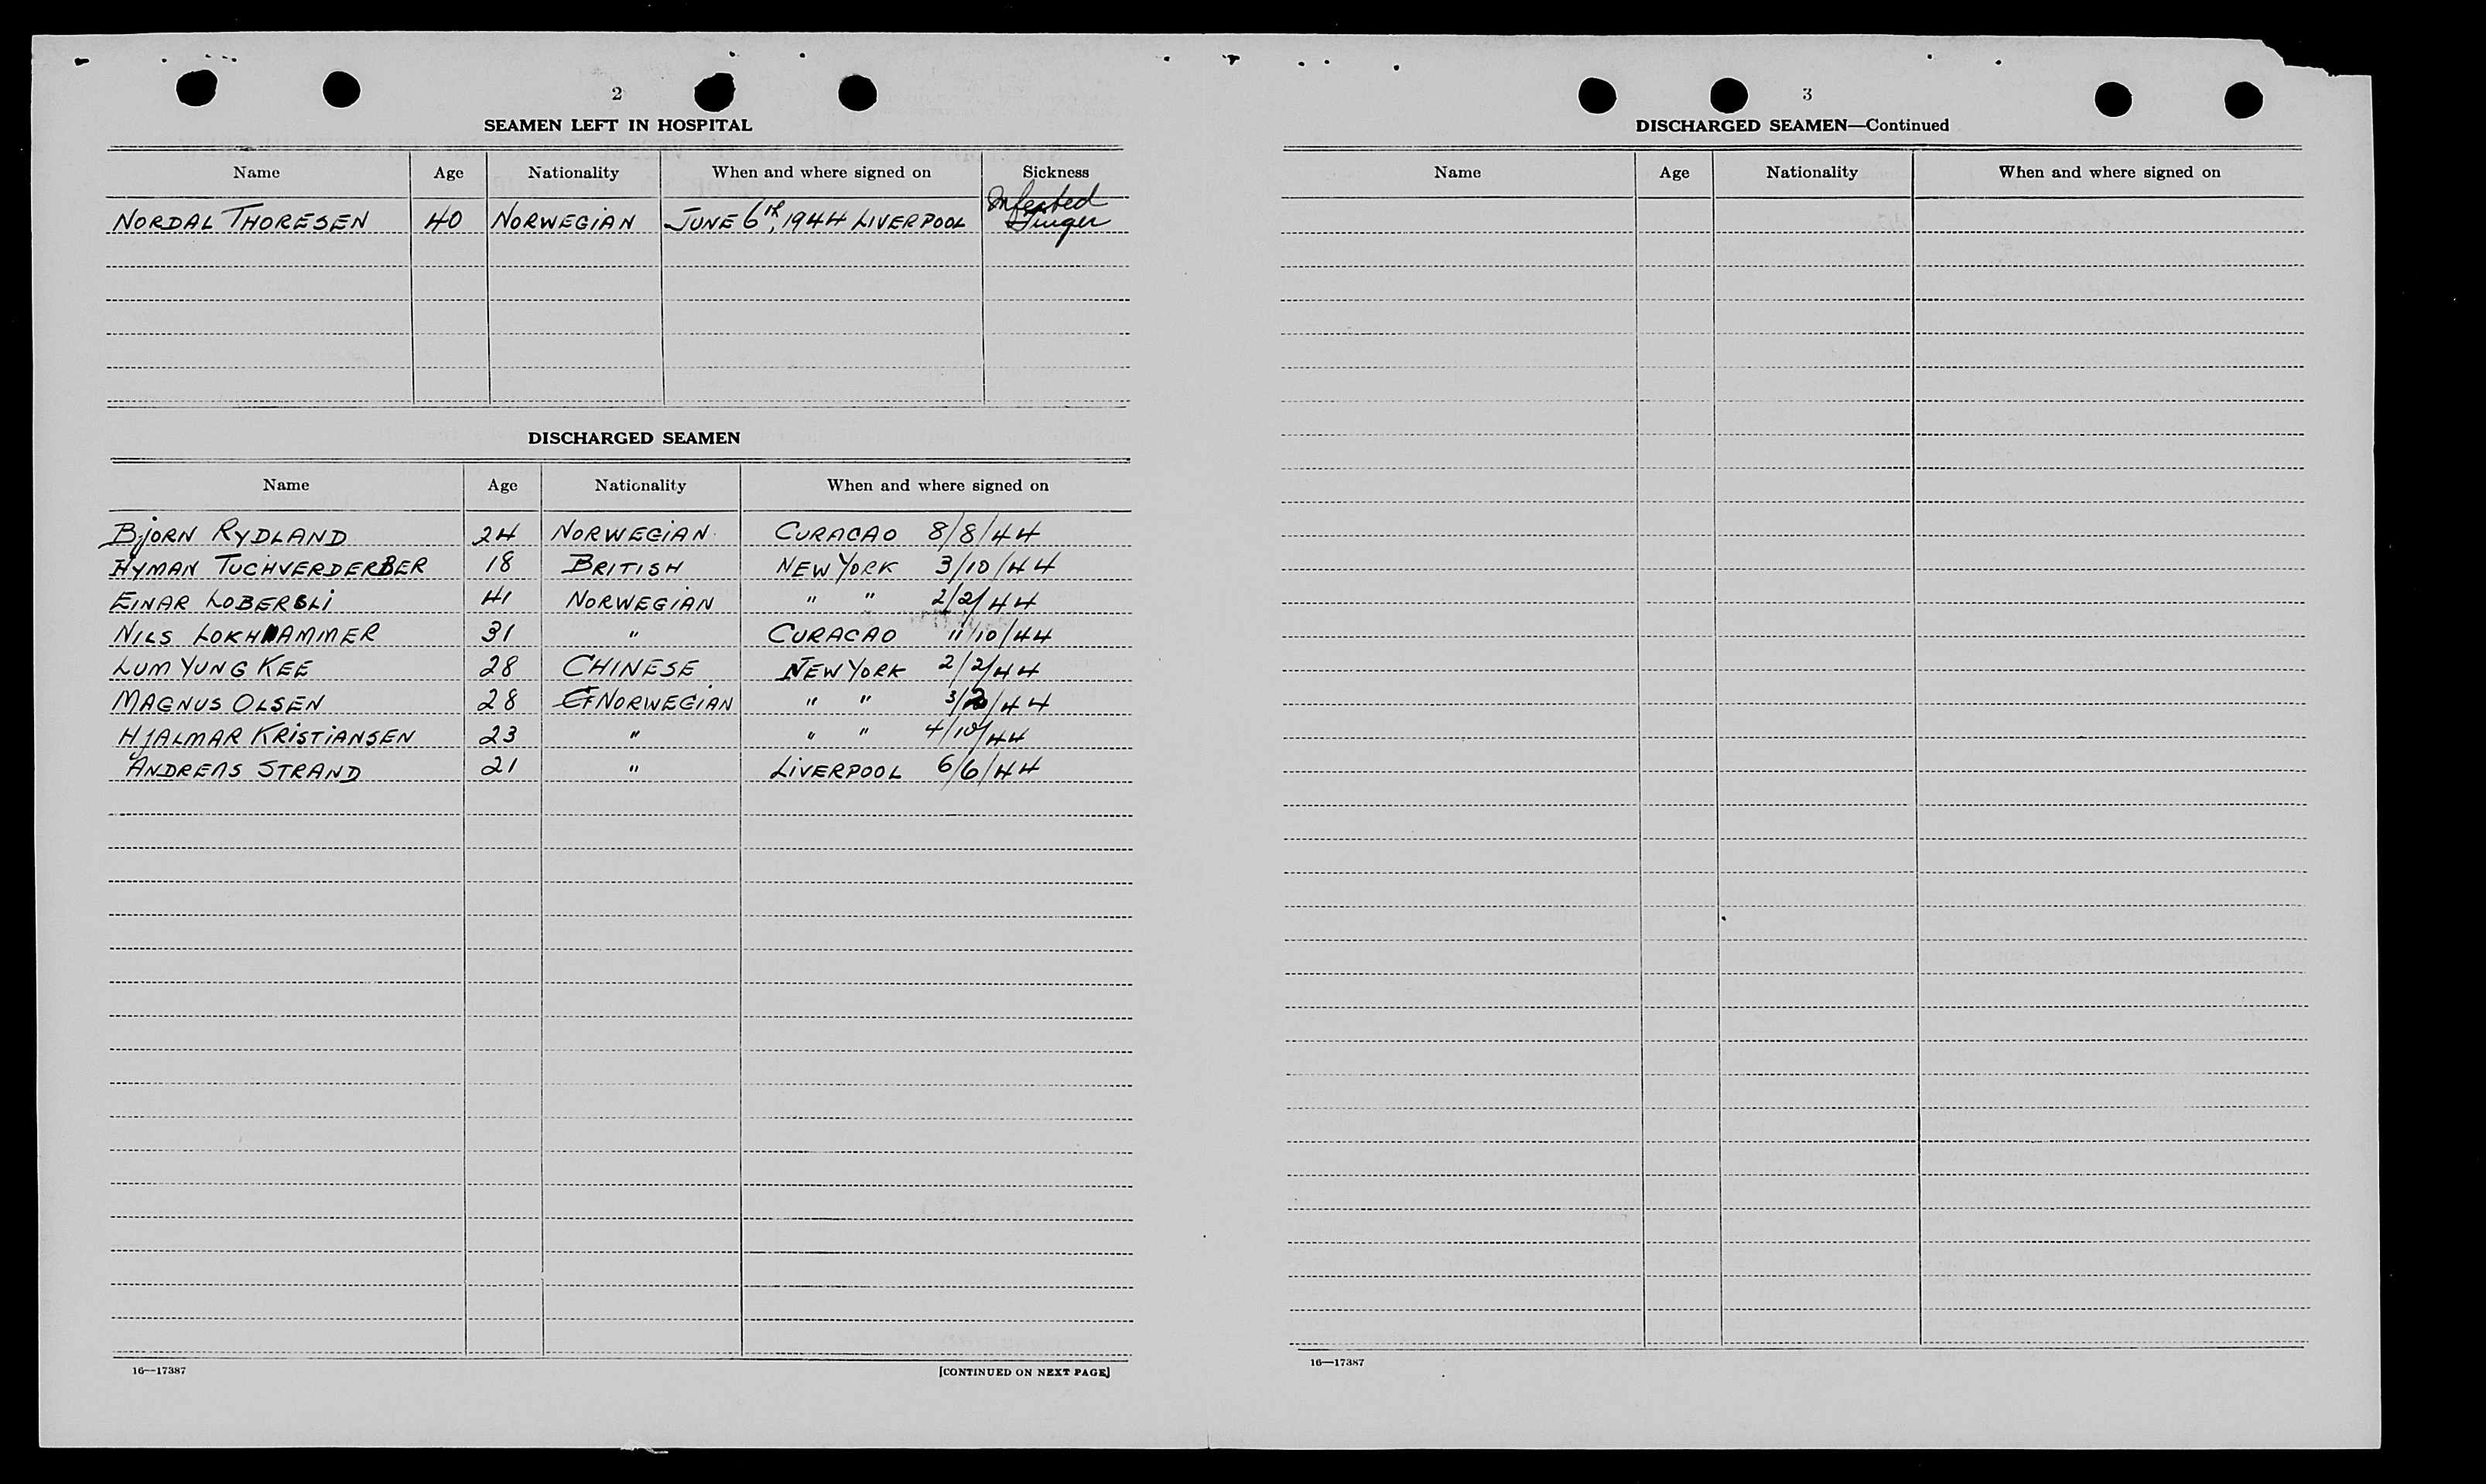 2
SEAMEN LEFT IN HOSPITAL
Name Age Nationality When and where signed on Sickness
NORDAL THORESEN 40 NORWEGIAN JUNE 6th, 1944 LIVERPOOL Infected Finger
DISCHARGED SEAMEN
Name Age Nationality When and where signed on
BJORN RYDLAND 24 NORWEGIAN CURACAO 8/8/44
HYMAN TUCHVERDERBER 18 BRITISH NEW YORK 3/10/44
EINAR LOBERSLI 41 NORWEGIAN " " 2/2/44
NILS LOKHAMMER 31 " CURACAO 11/10/44
LUM YUNG KEE 28 CHINESE NEW YORK 2/2/44
MAGNUS OLSEN 28 NORWEGIAN " " 3/2/44
HJALMAR KRISTIANSEN 23 " " " 4/10/44
ANDREAS STRAND 21 " LIVERPOOL 6/6/44
16—17387 [CONTINUED ON NEXT PAGE]
3
DISCHARGED SEAMEN—Continued
Name Age Nationality When and where signed on
16—17387